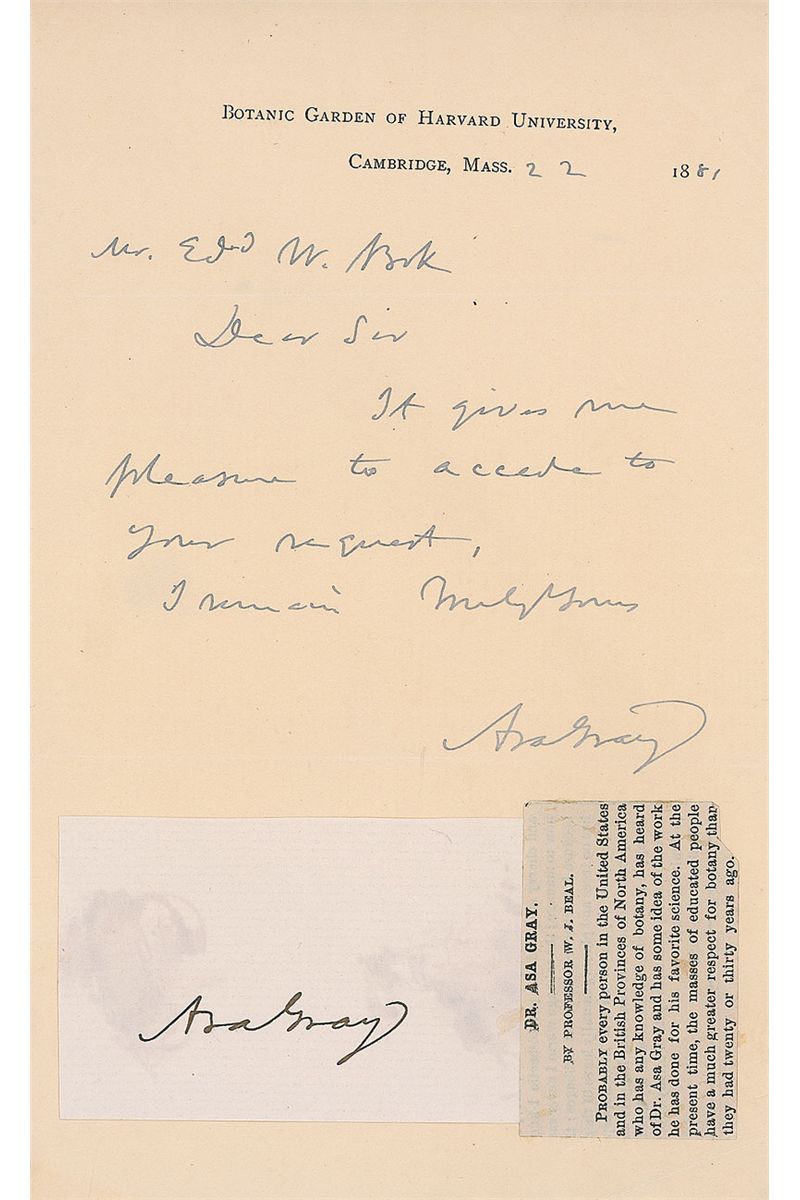 BOTANIC GARDEN OF HARVARD UNIVERSITY,
CAMBRIDGE, MASS. 22 1881
Mr. Edwd W. Bok
Dear Sir
It gives me
pleasure to accede to
your request,
I remain Truly Yours
Asa Gray
Asa Gray
DR. ASA GRAY.
BY PROFESSOR W. J. BEAL.
PROBABLY every person in the United States
and in the British Provinces of North America
who has any knowledge of botany, has heard
of Dr. Asa Gray and has some idea of the work
he has done for his favorite science. At the
present time, the masses of educated people
have a much greater respect for botany than
they had twenty or thirty years ago.